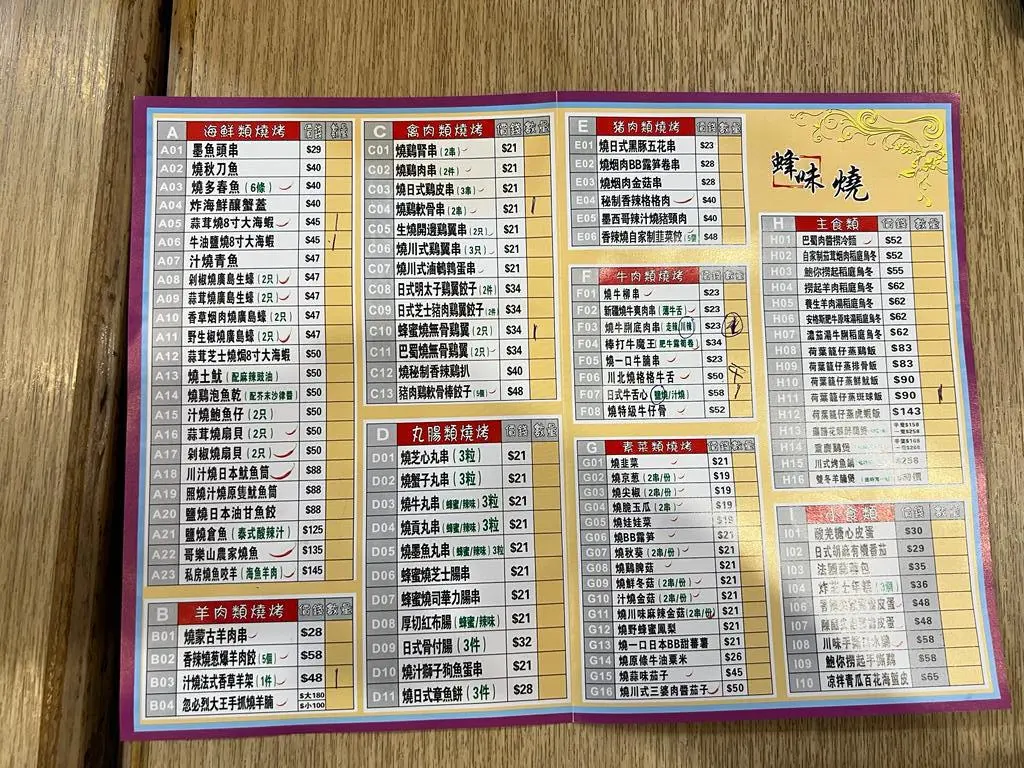 A 海鮮類燒烤 價錢 數量
A01 墨魚頭串 $29
A02 燒秋刀魚 $40
A03 燒多春魚 (6條) $40
A04 炸海鮮釀蟹蓋 $40
A05 蒜茸燒8寸大海蝦 $45
A06 牛油鹽燒8寸大海蝦 $45
A07 汁燒青魚 $47
A08 剁椒燒廣島生蠔 (2只) $47
A09 蒜茸燒廣島生蠔 (2只) $47
A10 香草烟肉燒廣島蠔 (2只) $47
A11 野生椒燒廣島生蠔 (2只) $47
A12 蒜茸芝士燒焗8寸大海蝦 $50
A13 燒土魷 (配麻辣豉油) $50
A14 燒鷄泡魚乾 (配芥末沙律醬) $50
A15 汁燒鮑魚仔 (2只) $50
A16 蒜茸燒扇貝 (2只) $50
A17 剁椒燒扇貝 (2只) $50
A18 川汁燒日本魷魚筒 $88
A19 照燒汁燒原隻魷魚筒 $88
A20 鹽燒日本油甘魚鮫 $88
A21 鹽燒倉魚 (泰式酸辣汁) $125
A22 哥樂山農家燒魚 $135
A23 私房燒魚咬羊 (海魚羊肉) $145
B 羊肉類燒烤 價錢 數量
B01 燒蒙古羊肉串 $28
B02 香辣燒葱爆羊肉餃 (5個) $58
B03 汁燒法式香草羊架 (1件) $48
B04 忽必烈大王手抓燒羊腩 $大180 $小100
C 禽肉類燒烤 價錢 數量
C01 燒鷄腎串 (2串) $21
C02 燒鷄肉串 (2件) $21
C03 燒日式鷄皮串 (3串) $21
C04 燒鷄軟骨串 (2串) $21
C05 生燒開邊鷄翼串 (2只) $21
C06 燒川式鷄翼串 (3只) $21
C07 燒川式滷鵪鶉蛋串 $21
C08 日式明太子鷄翼餃子 (2件) $34
C09 日式芝士豬肉鷄翼餃子 (2件) $34
C10 蜂蜜燒無骨鷄翼 (2只) $34
C11 巴蜀燒無骨鷄翼 (2只) $34
C12 燒秘制香辣鷄扒 $40
C13 豬肉鷄軟骨棒餃子 (5個) $48
D 丸腸類燒烤 價錢 數量
D01 燒芝心丸串 (3粒) $21
D02 燒蟹子丸串 (3粒) $21
D03 燒牛丸串 (蜂蜜/辣味) 3粒 $21
D04 燒貢丸串 (蜂蜜/辣味) 3粒 $21
D05 燒墨魚丸串 (蜂蜜/辣味) 3粒 $21
D06 蜂蜜燒芝士腸串 $21
D07 蜂蜜燒司華力腸串 $21
D08 厚切紅布腸 (蜂蜜/辣味) $21
D09 日式骨付腸 (3件) $32
D10 燒汁獅子狗魚蛋串 $21
D11 燒日式章魚餅 (3件) $28
E 猪肉類燒烤 價錢 數量
E01 燒日式黑豚五花串 $23
E02 燒烟肉BB露笋卷串 $28
E03 燒烟肉金菇串 $28
E04 秘制香辣格格肉 $40
E05 墨西哥辣汁燒豬頸肉 $40
E06 香辣燒自家制韮菜餃 (5個) $48
F 牛肉類燒烤 價錢 數量
F01 燒牛柳串 $23
F02 新疆燒牛爽肉串 (薄牛舌) $23
F03 燒牛𦟌底肉串 (走辣/川辣) $23
F04 棒打牛魔王 (肥牛露荀卷) $34
F05 燒一口牛腩串 $23
F06 川北燒格格牛舌 $50
F07 日式牛舌心 (鹽燒/汁燒) $58
F08 燒特級牛仔骨 $52
G 素菜類燒烤 價錢 數量
G01 燒韭菜 $21
G02 燒京葱 (2串/份) $19
G03 燒尖椒 (2串/份) $19
G04 燒脆玉瓜 (2串) $19
G05 燒娃娃菜 $19
G06 燒BB露笋 $21
G07 燒秋葵 (2串/份) $21
G08 燒鷄脾菇 $21
G09 燒鮮冬菇 (2串/份) $21
G10 汁燒金菇 (2串/份) $21
G11 燒川味麻辣金菇 (2串/份) $21
G12 燒野蜂蜜鳳梨 $21
G13 燒一口日本BB甜蕃薯 $21
G14 燒原條牛油粟米 $26
G15 蒜味燒茄子 $45
G16 燒川式三婆肉醬茄子 $50
蜂味燒
H 主食類 價錢 數量
H01 巴蜀肉醬撈冷麵 $52
H02 自家制茄茸烟肉稻庭烏冬 $52
H03 鮑你撈起稻庭烏冬 $55
H04 撈起羊肉稻庭烏冬 $62
H05 養生羊肉湯稻庭烏冬 $62
H06 安格斯肥牛原味湯稻庭烏冬 $62
H07 濃茄湯牛𦟌稻庭烏冬 $62
H08 荷葉籠仔蒸鷄飯 $83
H09 荷葉籠仔蒸排骨飯 $83
H10 荷葉籠仔蒸鮮魷飯 $90
H11 荷葉籠仔蒸斑球飯 $90
H12 荷葉籠仔蒸虎蝦飯 $143
H13 $158 $258
H14 重慶鷄煲 $168 $268
H15 川式烤魚鍋 $258
H16 雙冬羊腩煲
I 小食類 價錢 數量
I01 酸羌糖心皮蛋 $30
I02 日式胡麻有機番茄 $29
I03 法國蒜蓉包 $35
I04 炸芝士年糕 (3個) $36
I06 皮蛋 $48
I07 皮蛋 $48
I08 川味手撕口水鷄 $58
I09 鮑你撈起手撕鷄 $58
I10 凉拌青瓜百花海蜇皮 $65